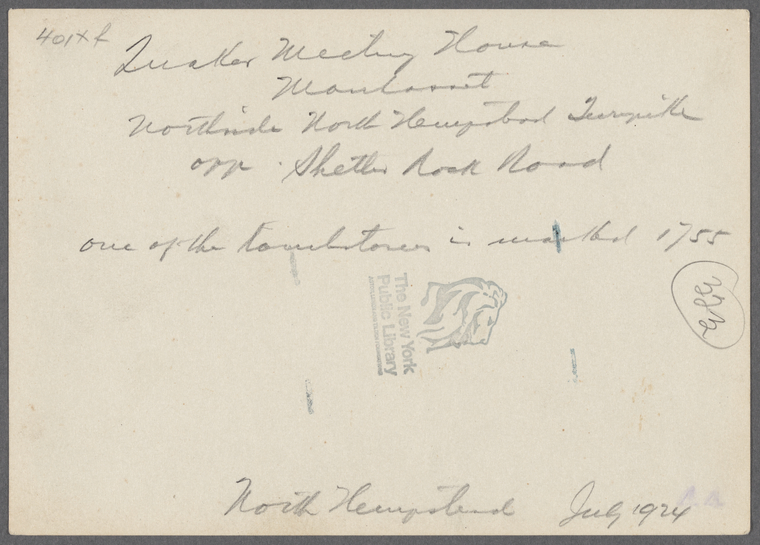 401xf
Quaker Meeting House
Manhasset
Northside North Hempstead Turnpike
opp. Shelter Rock Road
one of the tombstones is marked 1755
The New York
Public Library
North Hempstead July 1924